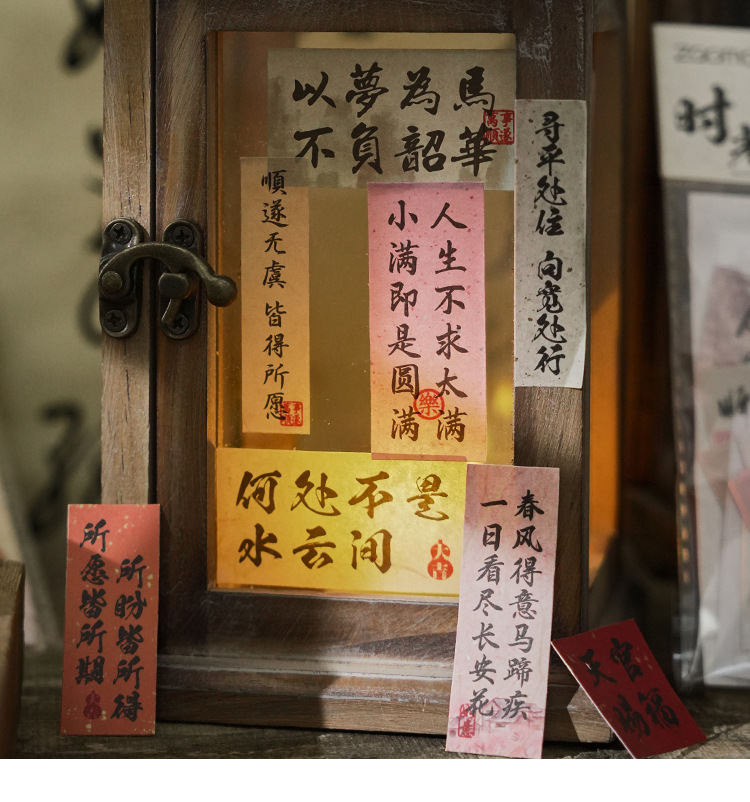 以夢為馬
不負韶華
萬事順遂
尋平处住 向宽处行
順遂无虞 皆得所愿
人生不求太满
小满即是圆满
樂
何处不是
水云间
大吉
春风得意马蹄疾
一日看尽长安花
所盼皆所得
所愿皆所期
天官
赐福
时